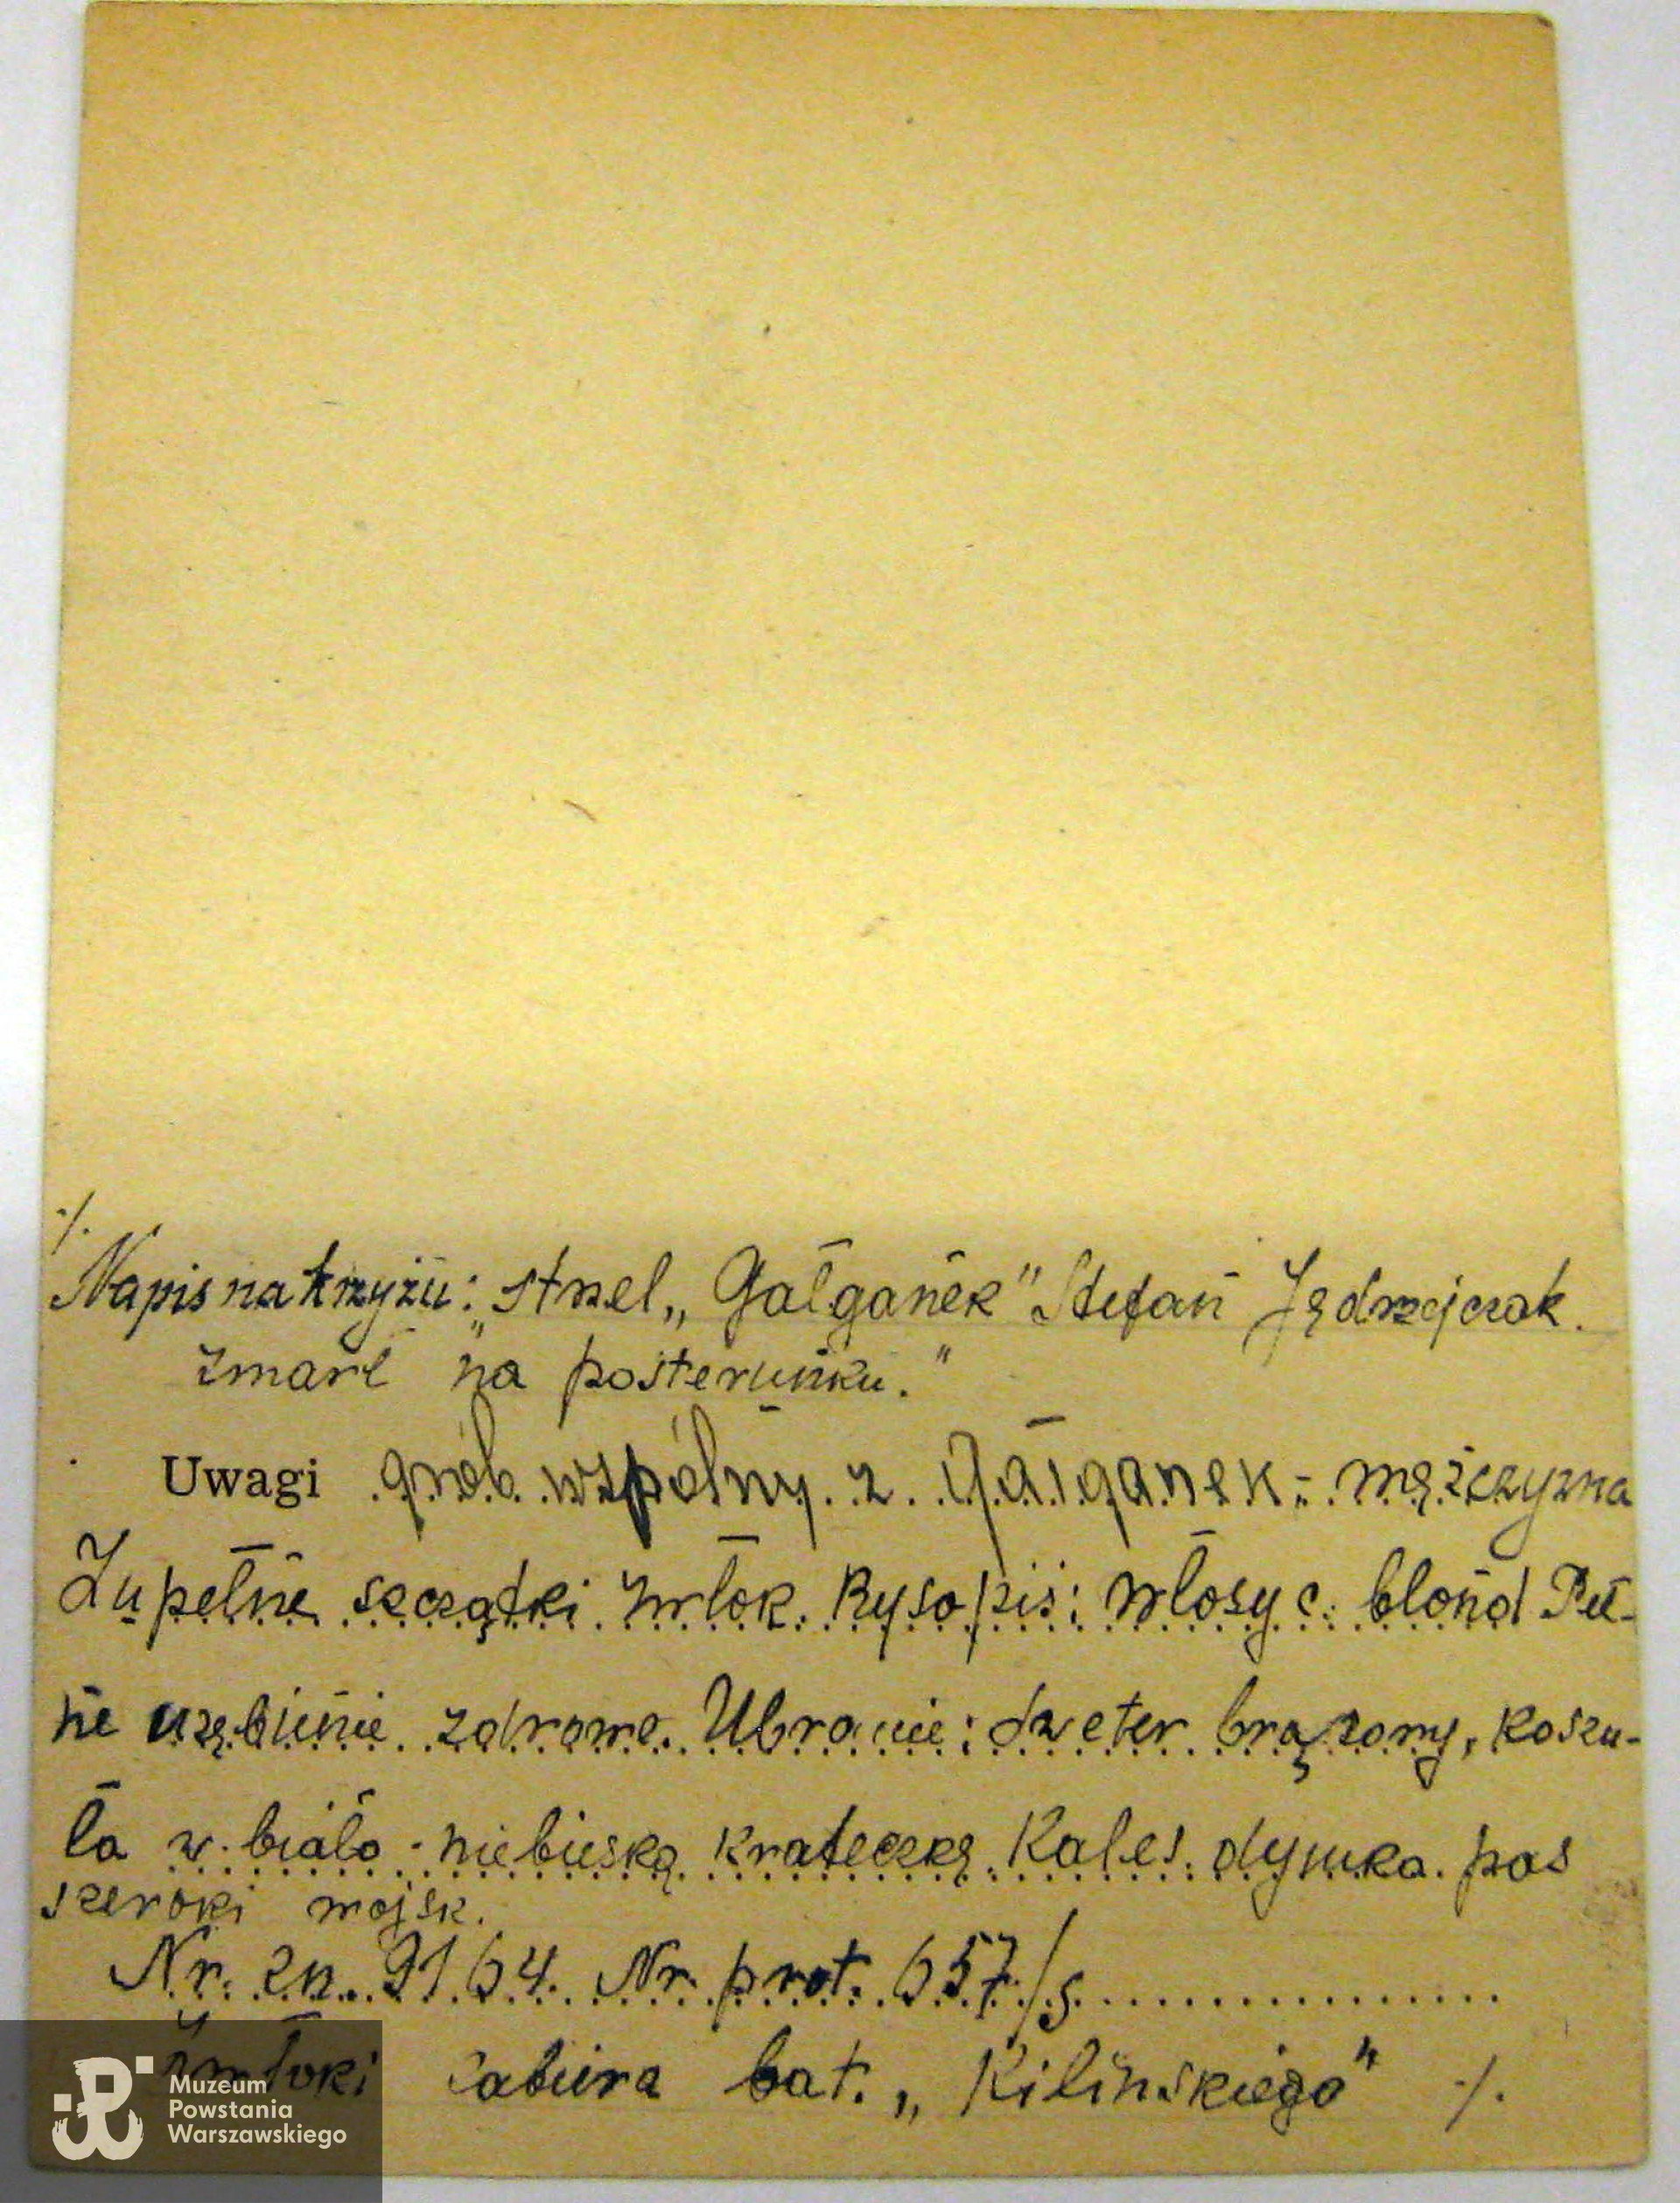 ./.
Napis na krzyżu: "strzel. „Gałganek" Stefan Jędrzejczak.
zmarł na posterunku."
Uwagi grób wspólny z Gałganek - mężczyzna
Zupełne szczątki zwłok. Rysopis: włosy c. blond Peł-
ne uzębienie zdrowe. Ubranie: sweter brązowy, koszu-
la w biało-niebieską krateczkę. Kales. dymka. pas
szeroki wojsk.
Nr. zn. 9164. Nr. prot. 657/s
Zwłoki zabiera bat. „Kilińskiego" ./.
Muzeum
Powstania
Warszawskiego